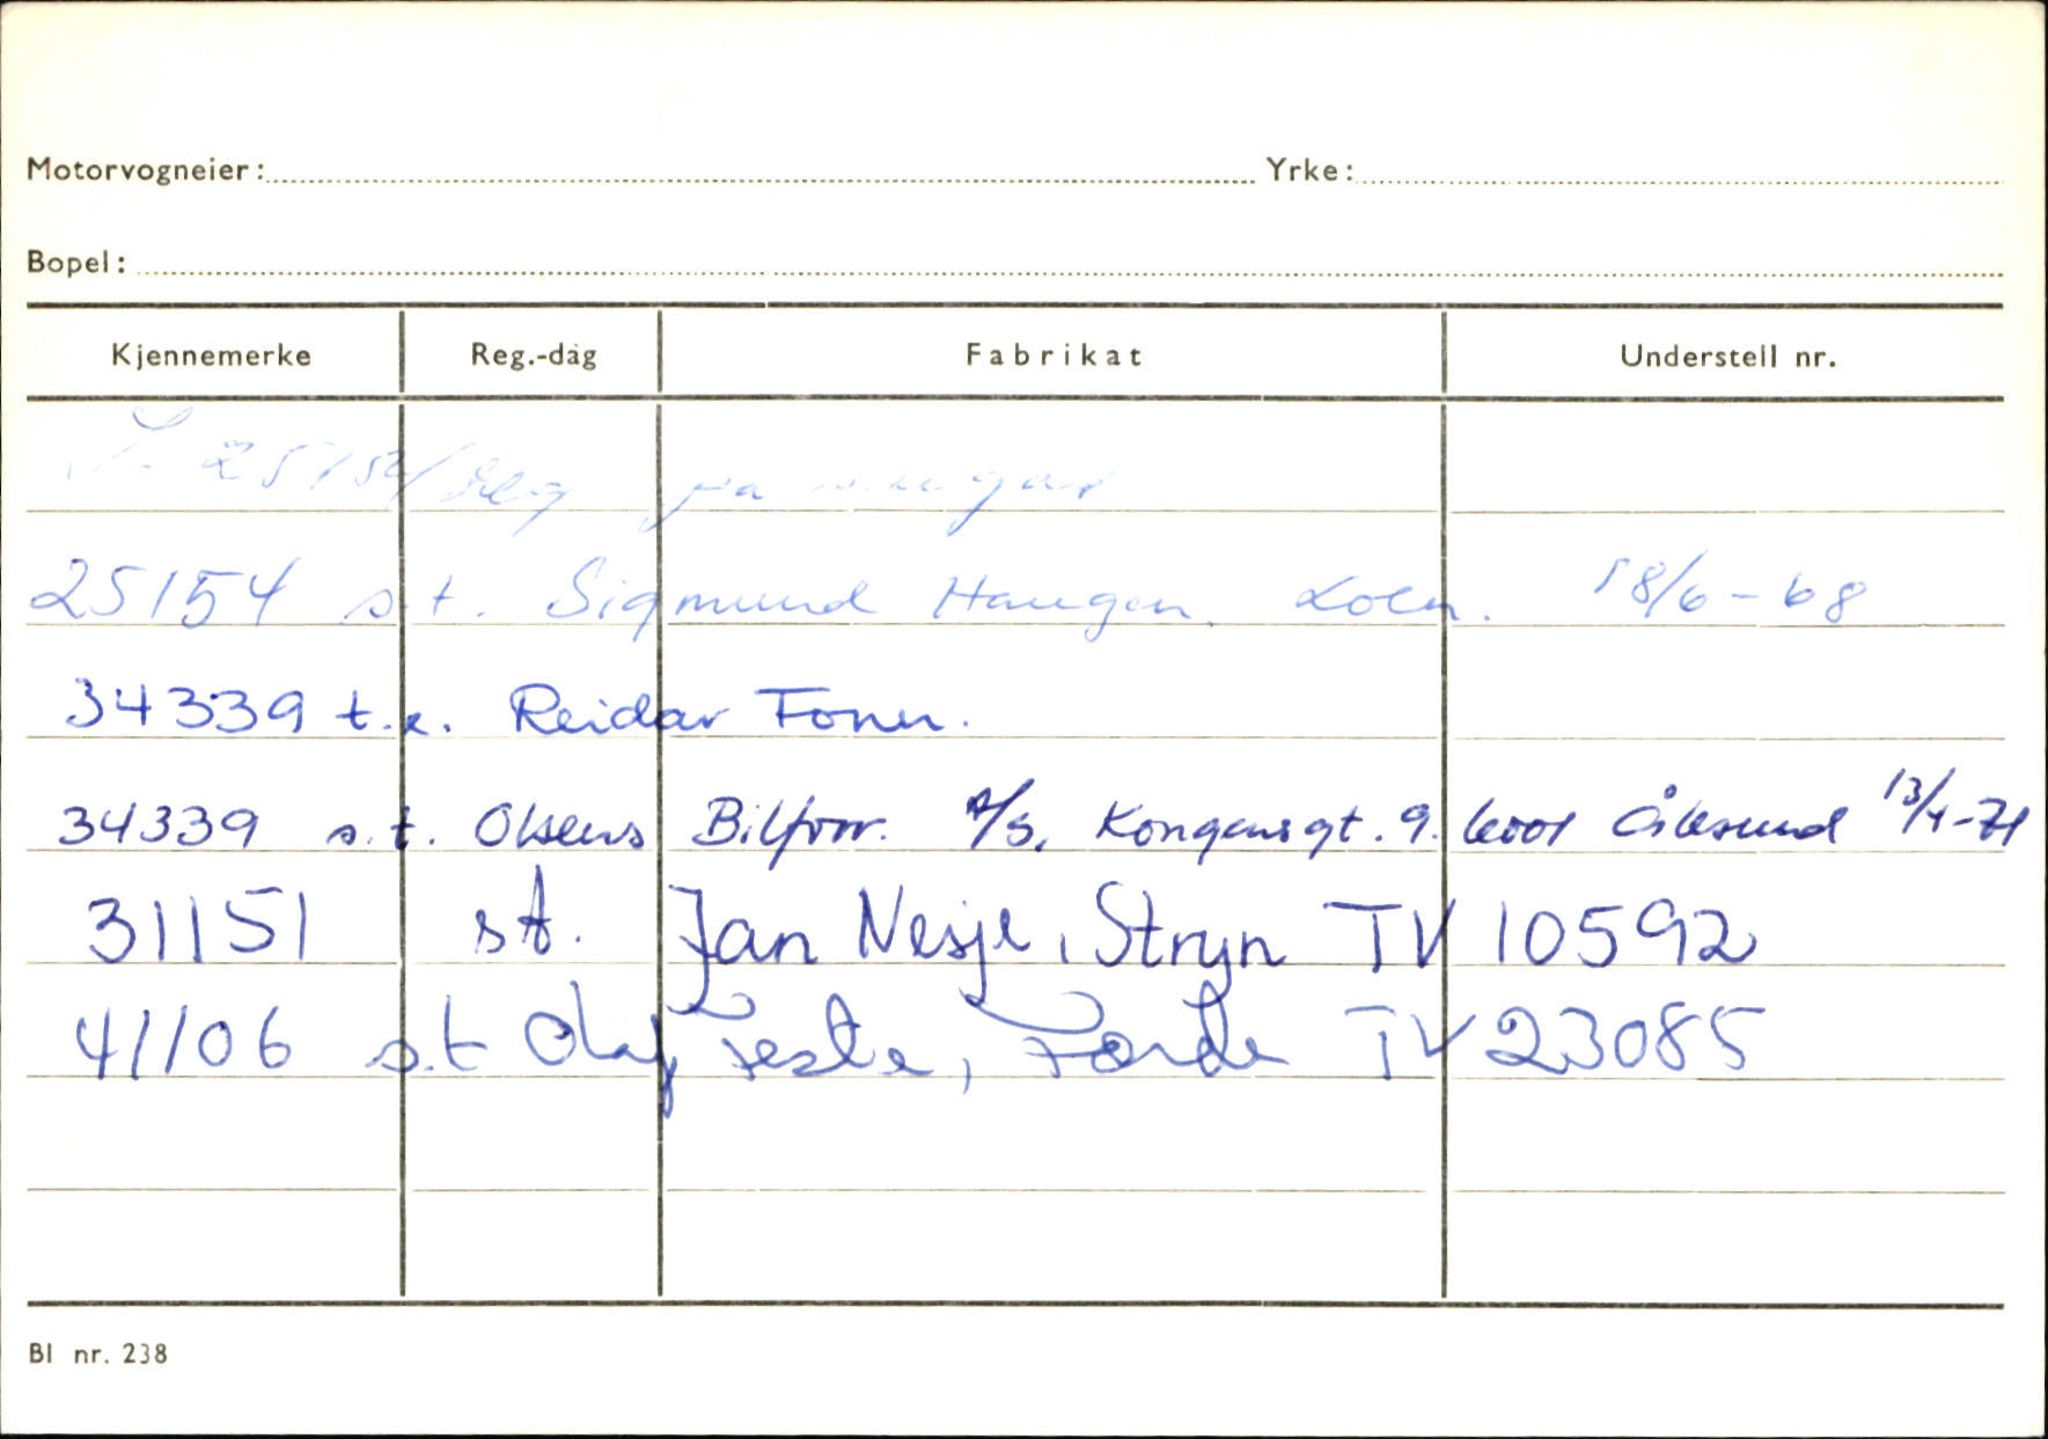 Motorvogneier: Yrke:
Bopel:
Kjennemerke Reg.-dag Fabrikat Understell nr.
25154/ på
25154 s.t. Sigmund Haugen. Loen. 18/6-68
34339 t.e. Reidar Fonn.
34339 s.t. Olsens Bilforr. A/S, Kongensgt. 9. 6001 Ålesund 13/4-71
31151 s.t. Jan Nesje, Stryn TV 10592
41106 s.t Olaf Feste, Førde TV 23085
Bl nr. 238